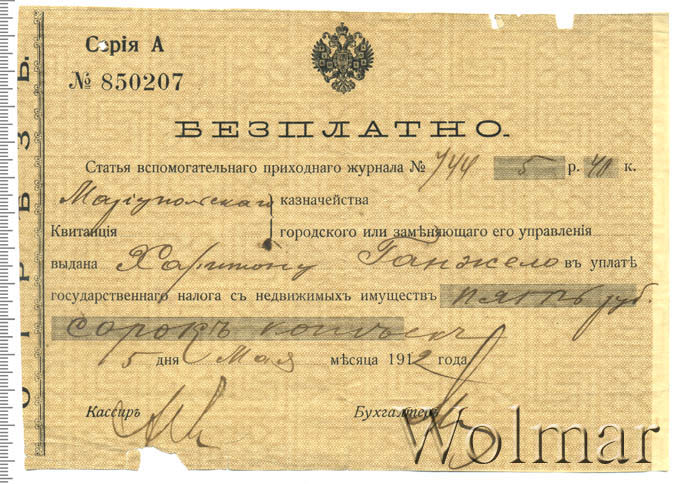 Серія А
№ 850207
БЕЗПЛАТНО.
Статья вспомогательнаго приходнаго журнала № 744 5 р. 40 к.
Маріупольскаго казначейства
Квитанція городского или замѣняющаго его управленія
выдана Харитону Ганжело въ уплатѣ
государственнаго налога съ недвижимыхъ имуществъ пять руб.
сорокъ копѣекъ
5 дня Мая мѣсяца 1912 года.
Кассиръ Бухгалтеръ
Wolmar